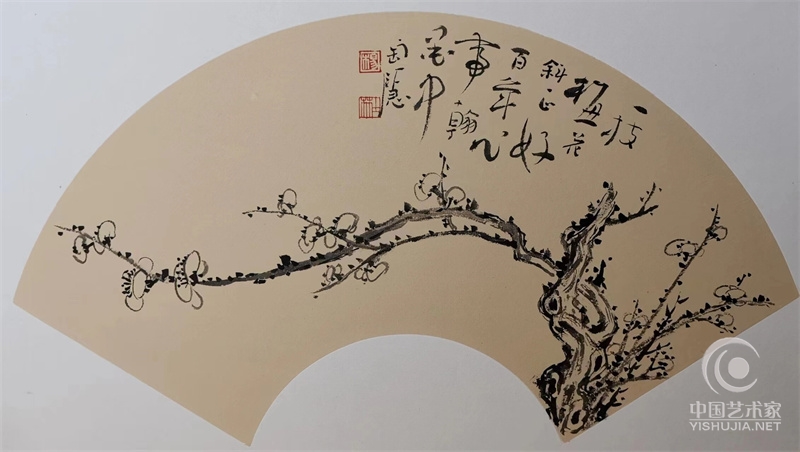 一枝
梅花
斜正好
百年心
事翰
墨中
中国艺术家
YISHUJIA.NET